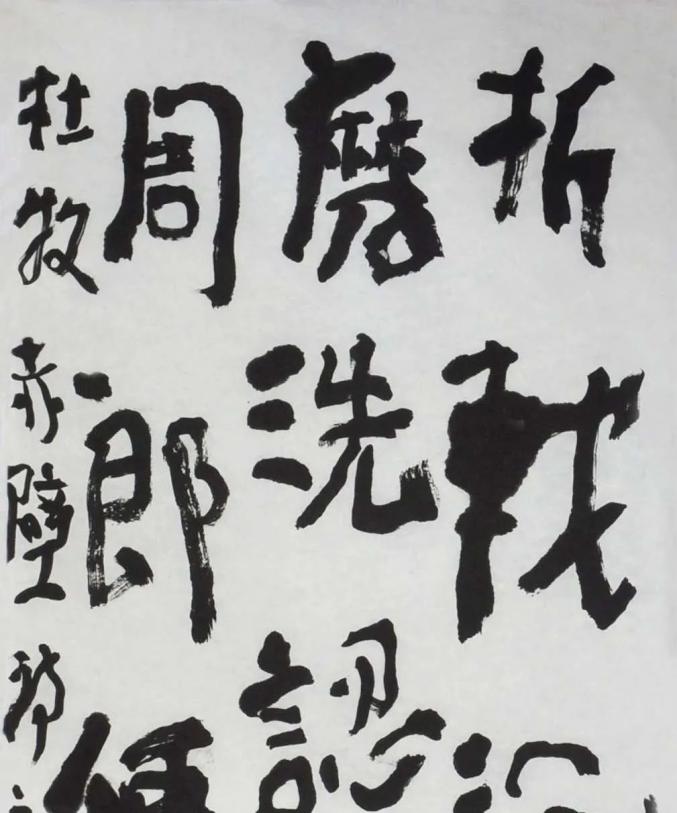 折戟沉
磨洗認
周郎便
杜牧赤壁詩